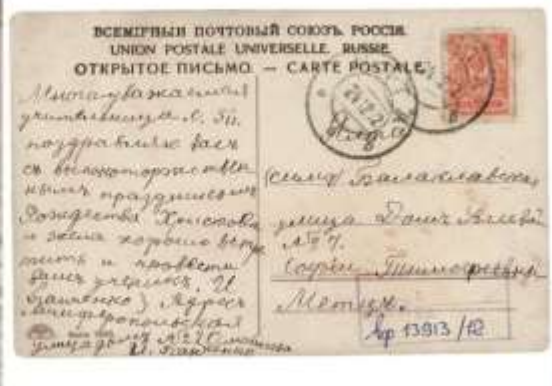 ВСЕМІРНЫЙ ПОЧТОВЫЙ СОЮЗЪ. РОССІЯ.
UNION POSTALE UNIVERSELLE. RUSSIE.
ОТКРЫТОЕ ПИСЬМО. — CARTE POSTALE.
Многоуважаемая
учительница
поздравляю Васъ
съ высокоторжествен
нымъ праздникомъ
Рождества Христова
и желаю хорошо встре
тить и провести
Вашъ ученикъ. И
Адресъ
Симферопольская
улица домъ №22
Балаклавская
улица Домъ
№ 7.
Софіи Тимофеевнѣ
Метикъ.
кр 13913/12